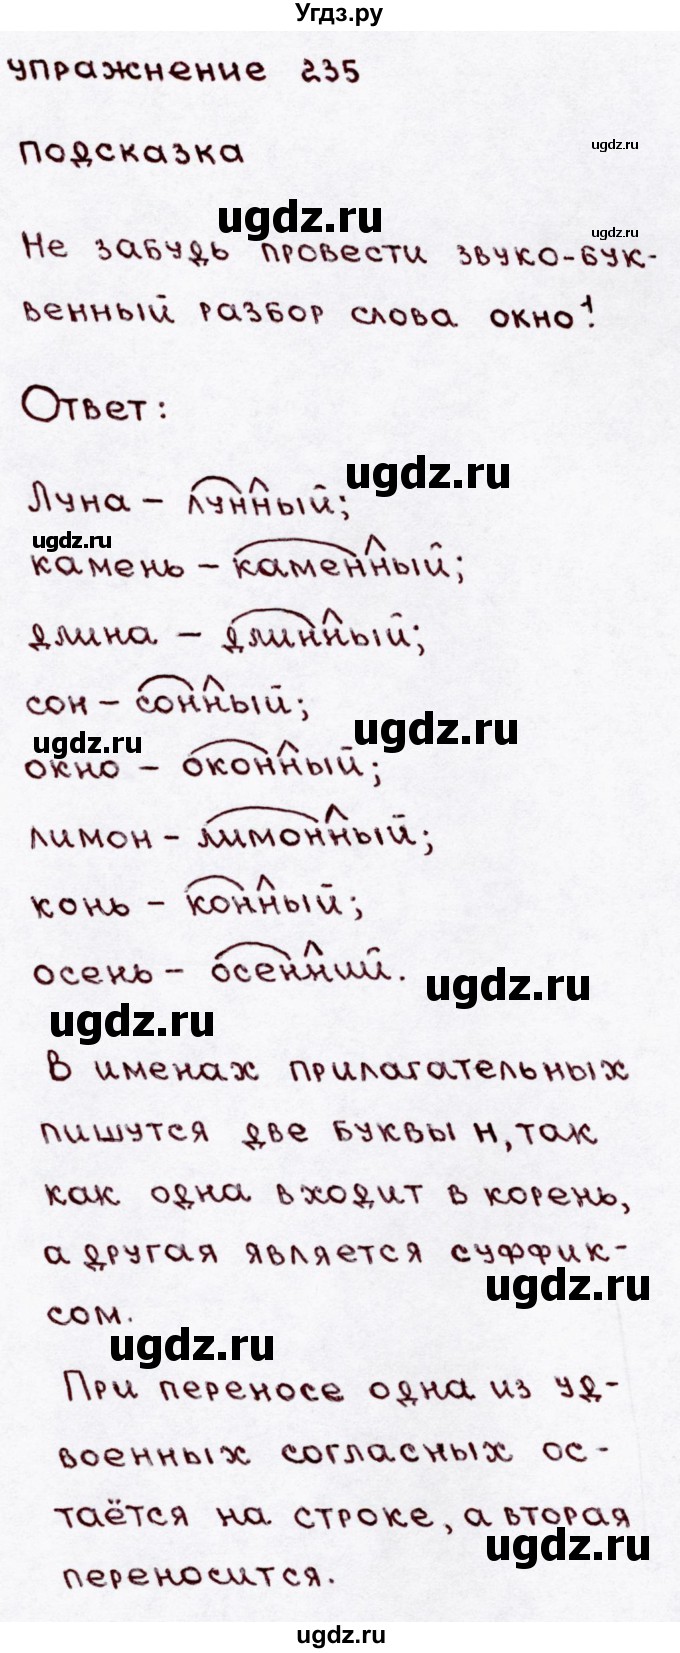 Угдз.ру
упражнение 235
подсказка
ugdz.ru
ugdz.ru
ugdz.ru
Не забудь провести звуко-бук-
венный разбор слова окно!¹
Ответ:
ugdz.ru
Луна – лунный;
ugdz.ru
камень – каменный;
длина – длинный;
сон – сонный;
ugdz.ru
ugdz.ru
окно – оконный;
лимон – лимонный;
конь – конный;
осень – осенний.
ugdz.ru
ugdz.ru
В именах прилагательных
пишутся две буквы н, так
как одна входит в корень,
а другая является суффик-
ugdz.ru
сом.
ugdz.ru
При переносе одна из уд-
военных согласных ос-
таётся на строке, а вторая
ugdz.ru
переносится.
ugdz.ru